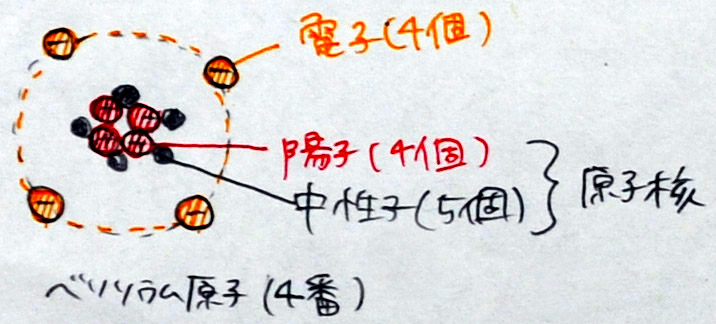 電子(4個)
陽子(4個)
中性子(5個)
原子核
ベリリウム原子(4番)